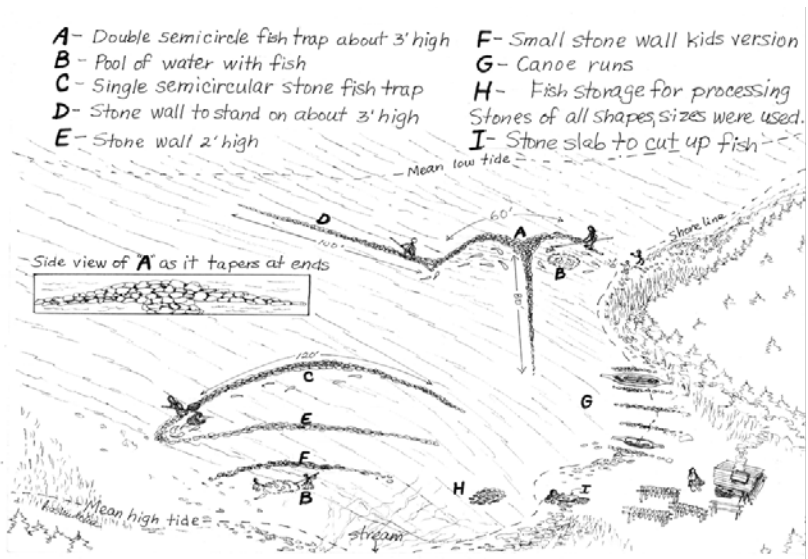 A- Double semicircle fish trap about 3' high
B- Pool of water with fish
C- Single semicircular stone fish trap
D- Stone wall to stand on about 3' high
E- Stone wall 2' high
F- Small stone wall kids version
G- Canoe runs
H- Fish storage for processing
Stones of all shapes, sizes were used.
I- Stone slab to cut up fish
Mean low tide
D
60'
A
Shoreline
100'
B
Side view of "A" as it tapers at ends
80'
120'
C
G
E
F
B
H
I
Mean high tide
stream